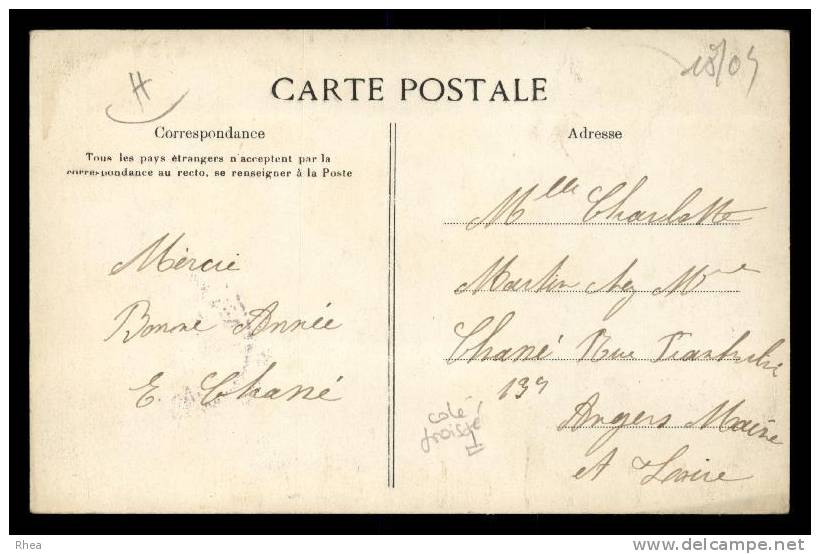 H
10/04
CARTE POSTALE
Correspondance
Tous les pays étrangers n'acceptent par la
correspondance au recto, se renseigner à la Poste
Mercie
Bonne Année
E. Chané
Adresse
Mlle Charlotte
Martin chez Mme
Chané Rue
137
Angers Maine
et Loire
coté
froissé
Rhea
www.delcampe.net